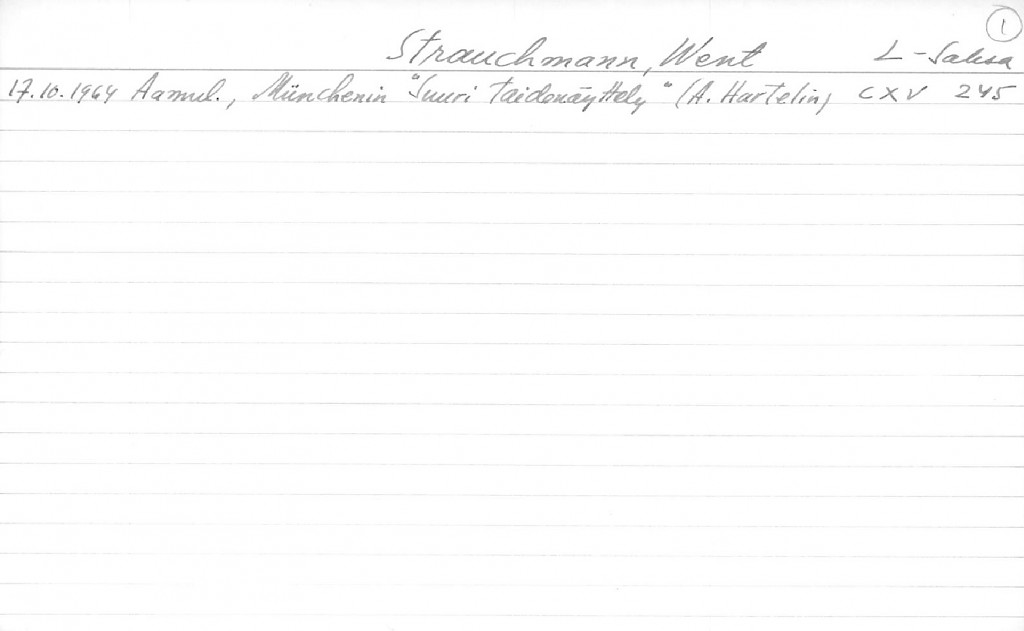 1
Strauchmann, Went L-Saksa
17.10.1964 Aamul., Münchenin "Suuri taidenäyttely" (A. Hartelin) CXV 245